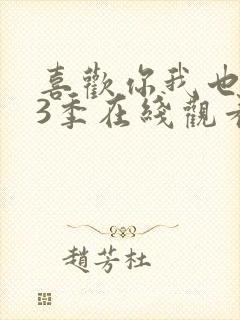 喜歡你我也
3季在綫觀
趙芳杜